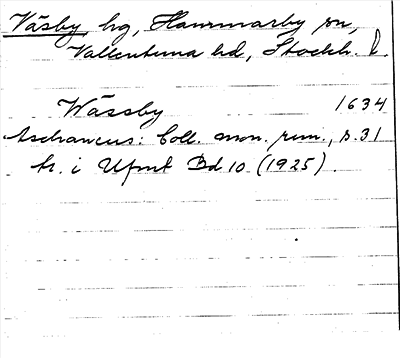 Väsby hg, Hammarby sn,
Vallentuna hd, Stockh. l.
Wässby 1634
Aschaneus: Coll. mon. run., s. 31
tr. i Ufmt Bd 10 (1925).